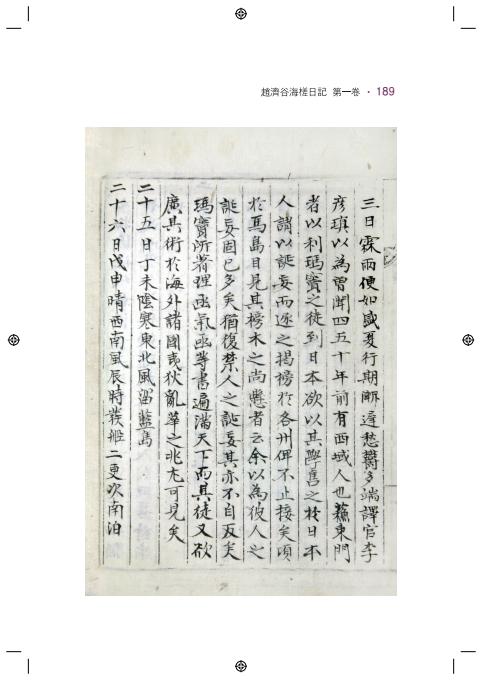 趙濟谷海槎日記 第一巻 · 189
三日霖雨便如盛夏行期漸違愁鬱多端譯官李
彦瑱以為曾聞四五十年前有西域人也蘓東門
者以利瑪竇之徒到日本欲以其學售之於日本
人謂以誕妄而逐之揭榜於各州俾不止接矣頃
於馬島目見其榜木之尚懸者云余以為彼人之
誕妄固已多矣猶復禁人之誕妄其亦不自反矣
瑪竇所著理函氣函等書遍滿天下而其徒又欲
廣其術於海外諸國夷狄亂華之兆尤可見矣
二十五日丁未陰寒東北風留藍島
二十六日戊申晴西南風辰時發船二更次南泊